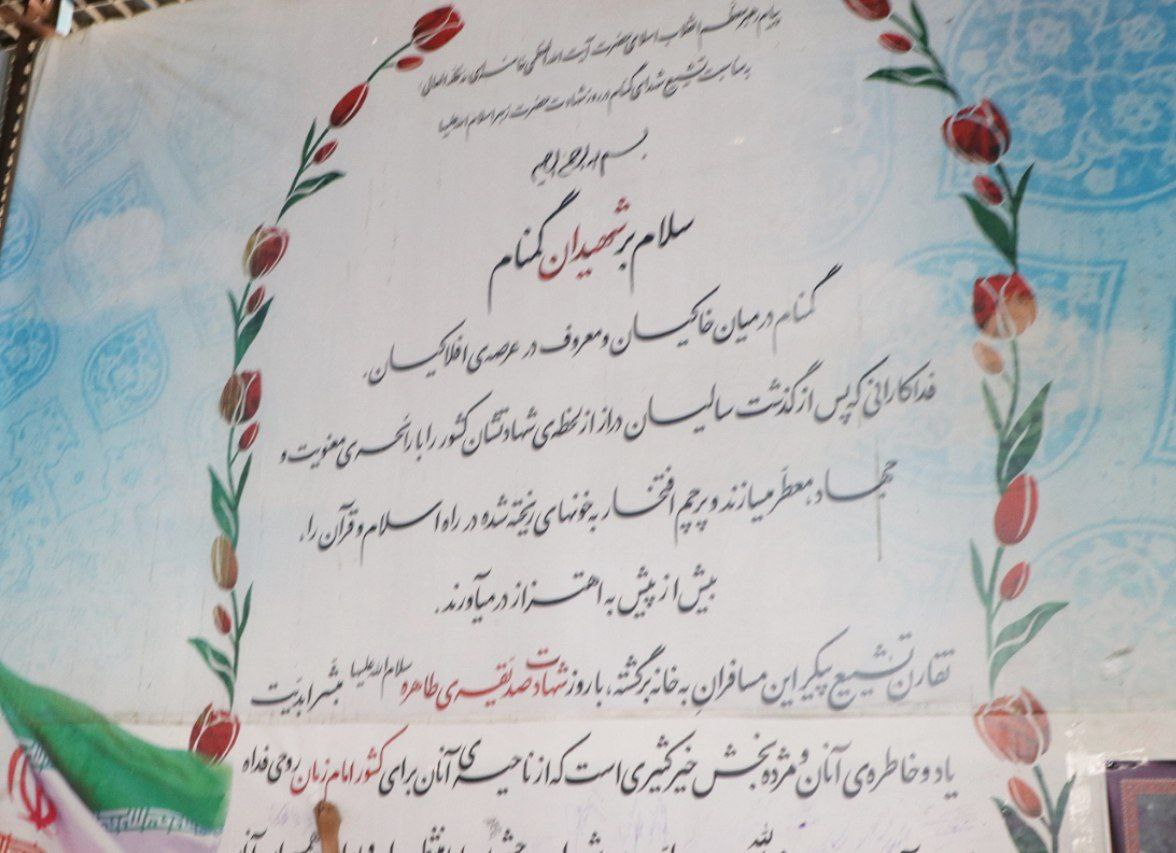 پیام رهبر معظم انقلاب اسلامی حضرت آیت الله العظمی خامنه‌ای مدظله العالی
به مناسبت تشییع شهدای گمنام در روز شهادت حضرت زهرا سلام الله علیها
بسم الله الرحمن الرحیم
سلام بر شهیدان گمنام
گمنام در میان خاکیان و معروف در عرصه‌ی افلاکیان.
فداکارانی که پس از گذشت سالیان دراز از لحظه‌ی شهادتشان کشور را با رائحه‌ی معنویت و
جهاد، معطّر میسازند و پرچم افتخار به خونهای ریخته شده در راه اسلام و قرآن را،
بیش از پیش به اهتزاز درمیآورند.
تقارن تشییع پیکر این مسافرانِ به خانه برگشته، با روز شهادت صدیقه‌ی طاهره سلام الله علیها مبشّر ابدیّت
یاد و خاطره‌ی آنان و مژده بخش خیر کثیری است که از ناحیه‌ی آنان برای کشور امام زمان روحی فداه